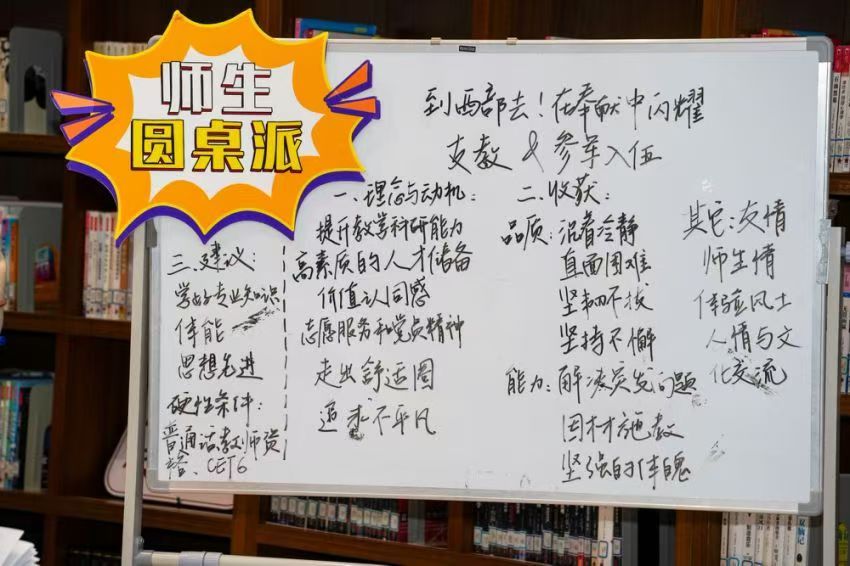 师生
圆桌派
到西部去！在奉献中闪耀
支教 & 参军入伍
一、理念与动机：
提升教学科研能力
高素质的人才储备
价值认同感
志愿服务和党员精神
走出舒适圈
追求不平凡
二、收获：
品质：沉着冷静
直面困难
坚韧不拔
坚持不懈
能力：解决突发问题
因材施教
坚强的体魄
其它：友情
师生情
体验风土
人情与文
化交流
三、建议：
学好专业知识
体能
思想先进
硬性条件：
普通话、教师资
格、CET6